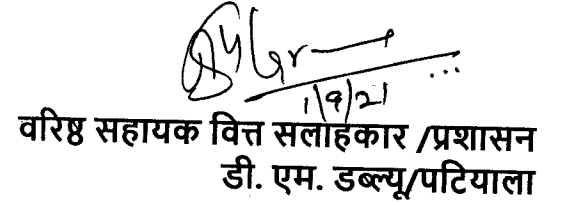 1/9/21
वरिष्ठ सहायक वित्त सलाहकार /प्रशासन
डी. एम. डब्ल्यू/पटियाला